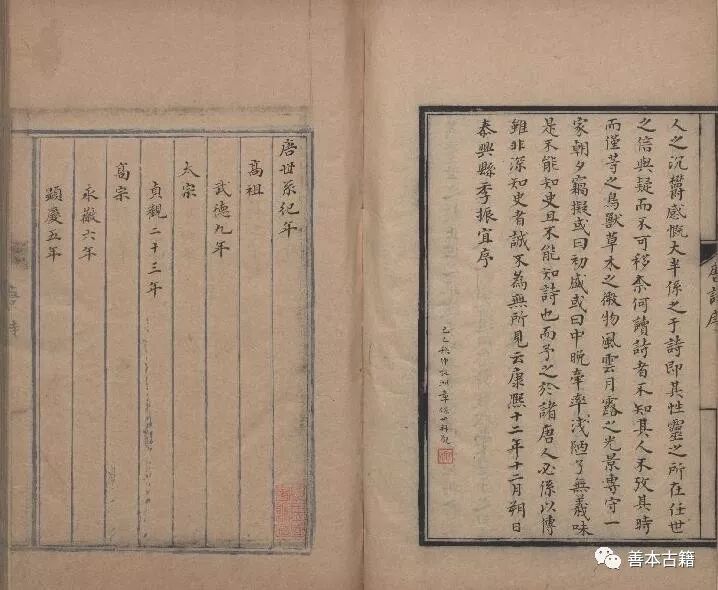 人之沉鬱感慨大半係之于詩即其性靈之所在任世
之信與疑而不可移奈何讀詩者不知其人不攷其時
而僅等之鳥獸草木之微物風雲月露之光景專守一
家朝夕竊擬或曰初盛或曰中晚牽率淺陋了無義味
是不能知史且不能知詩也而予之於諸唐人必係以傳
雖非深知史者誠不為無所見云康熙十二年十二月朔日
泰興縣季振宜序
唐詩序
唐世系紀年
高祖
武德九年
太宗
貞觀二十三年
高宗
永徽六年
顯慶五年
善本古籍